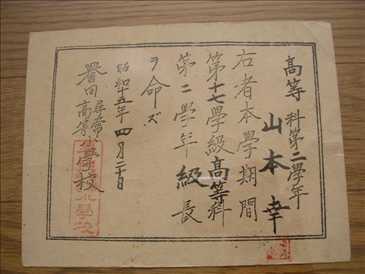 高等科第二學年
山本幸
右者本學期間
第十七學級高等科
第二學年級長
ヲ命ズ
昭和十五年四月二十日
誉田尋常高等小學校